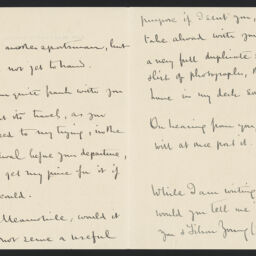 another sportsman, but
not yet to hand.
quite frank with you
its travel, as you
to my trying, in the
before your departure,
get my price for it if
would.
Meanwhile, would it
not serve a useful
purpose if I sent you,
take abroad with you
a very full duplicate
list of photographs,
here in my desk
On hearing from you
will at once post it.
While I am writing
would you tell me
you & Filson Young